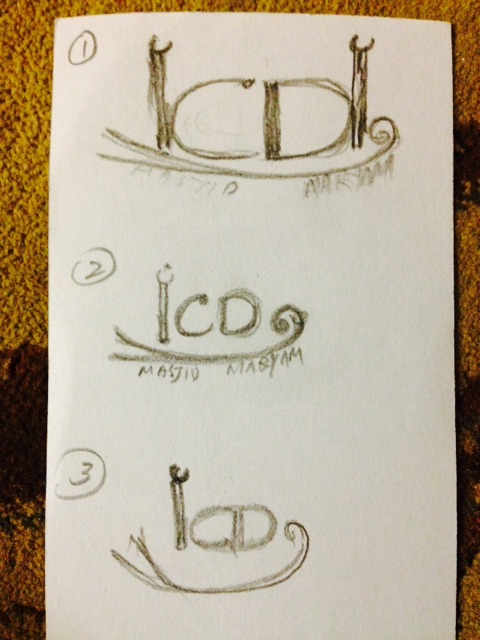 1
ICDI
MASJID MARYAM
2
ICD
MASJID MARYAM
3
ICD